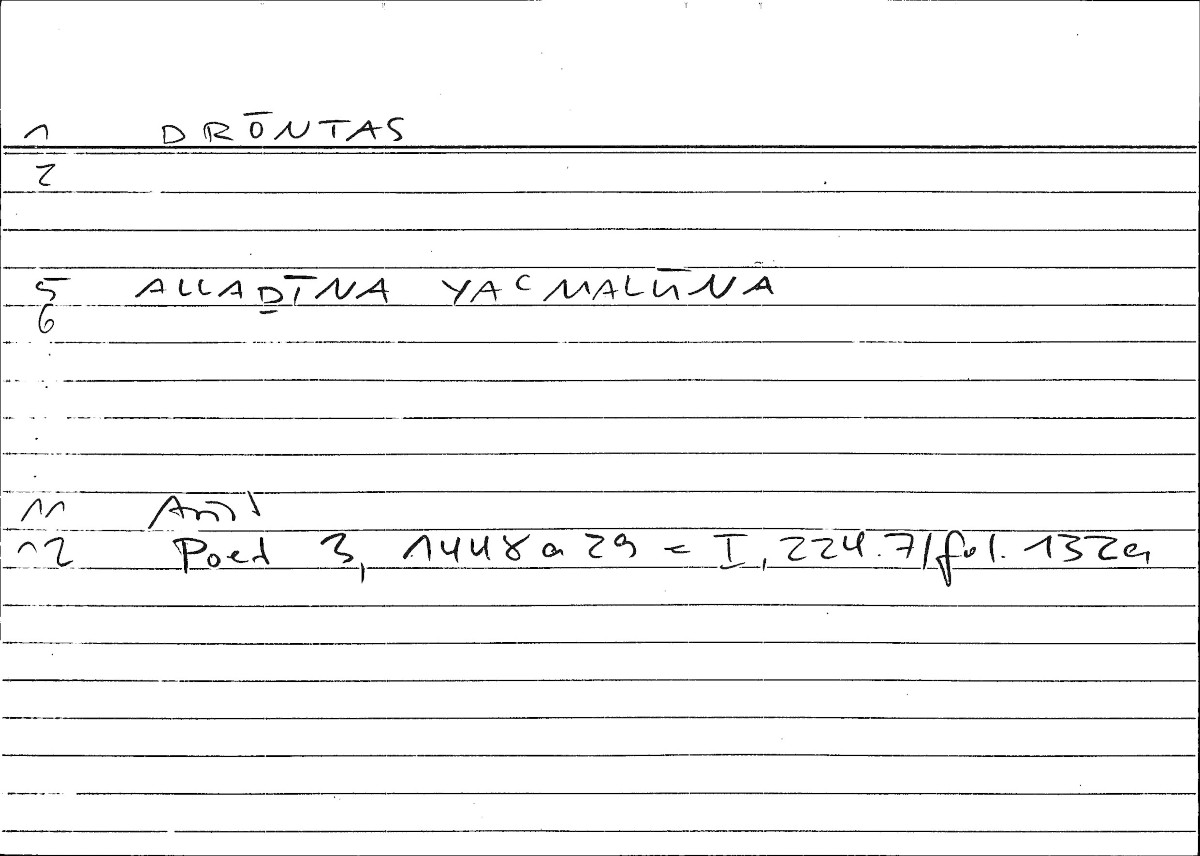 1 DRŌNTAS
2
5 ALLAḎĪNA YAᶜMALŪNA
6
11 Arist
12 Poet 3, 1448 a 29 = I, 224.7/fol. 132a